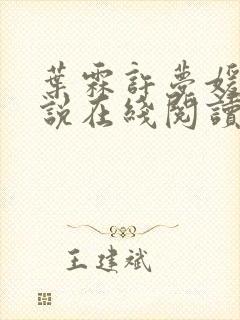 葉霖許夢媛
說在綫閱讀
王建斌